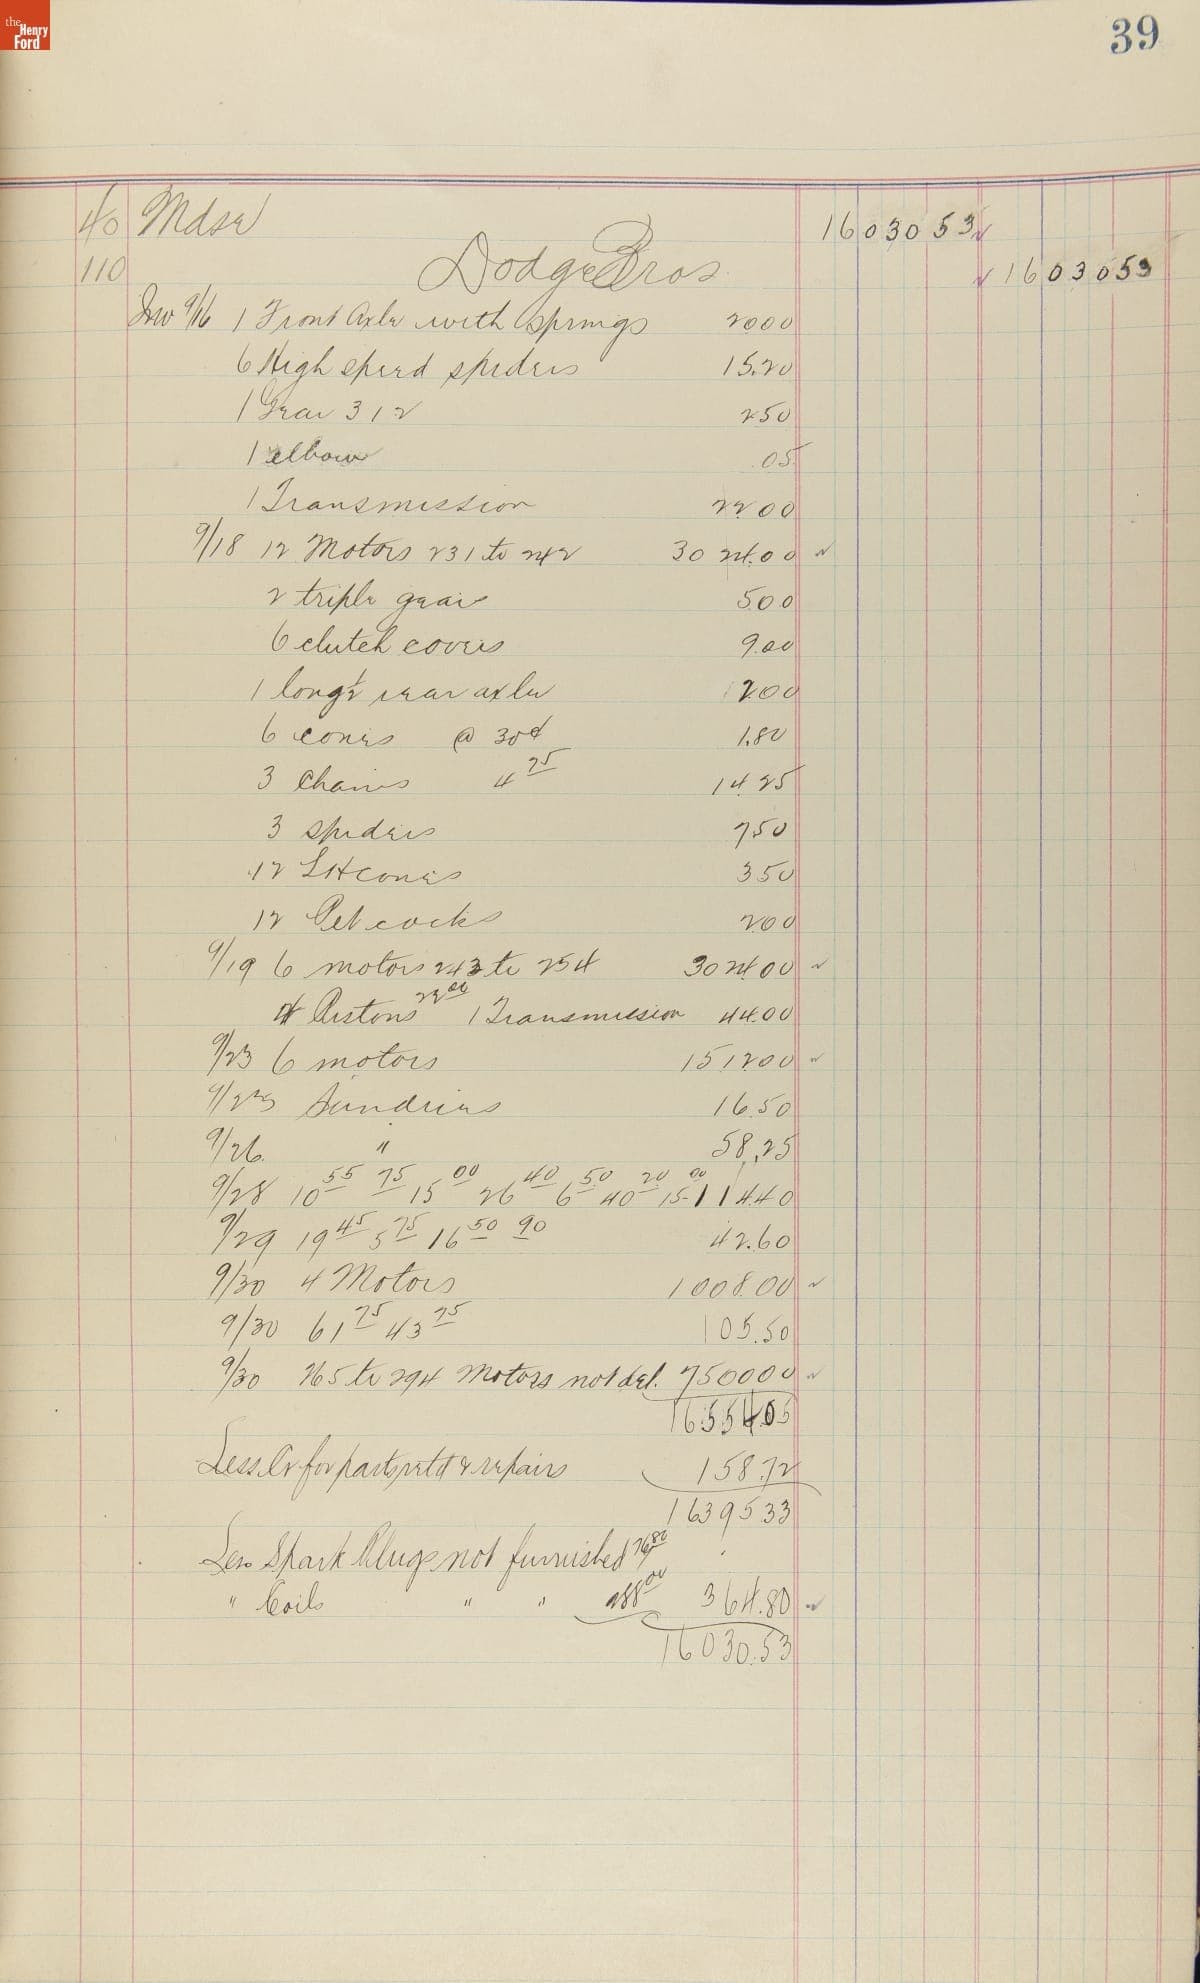 the Henry Ford
39
40 Mdse 16030 53
110 Dodge Bros 16030 53
Inv 9/16 1 Front Axle with springs 2000
6 High speed spiders 15.20
1 Gear 312 250
1 elbow .05
1 Transmission 2200
9/18 12 Motors 231 to 242 3024.00
2 triple gears 5.00
6 clutch covers 9.00
1 long rear axle 1200
6 cones @ 30¢ 1.80
3 Chains 4 75 14 25
3 spiders 750
12 LH cones 3 50
12 Pet cocks 200
9/19 6 motors 243 to 254 302400
4 Pistons 22 00 1 Transmission 44.00
9/23 6 motors 151200
9/25 Sundries 16.50
9/26 " 58.25
9/28 10 55 75 15 00 26 40 6 50 40 20 15 00 114.40
9/29 19 45 5 75 16 50 90 42.60
9/30 4 Motors 1008.00
9/30 61 75 43 75 105.50
9/30 265 to 294 Motors not del. 750000
1655405
Less Cr for parts retd & repairs 158.72
1639533
Less Spark Plugs not furnished 76 80
" Coils " " 288 00 364.80
16030.53